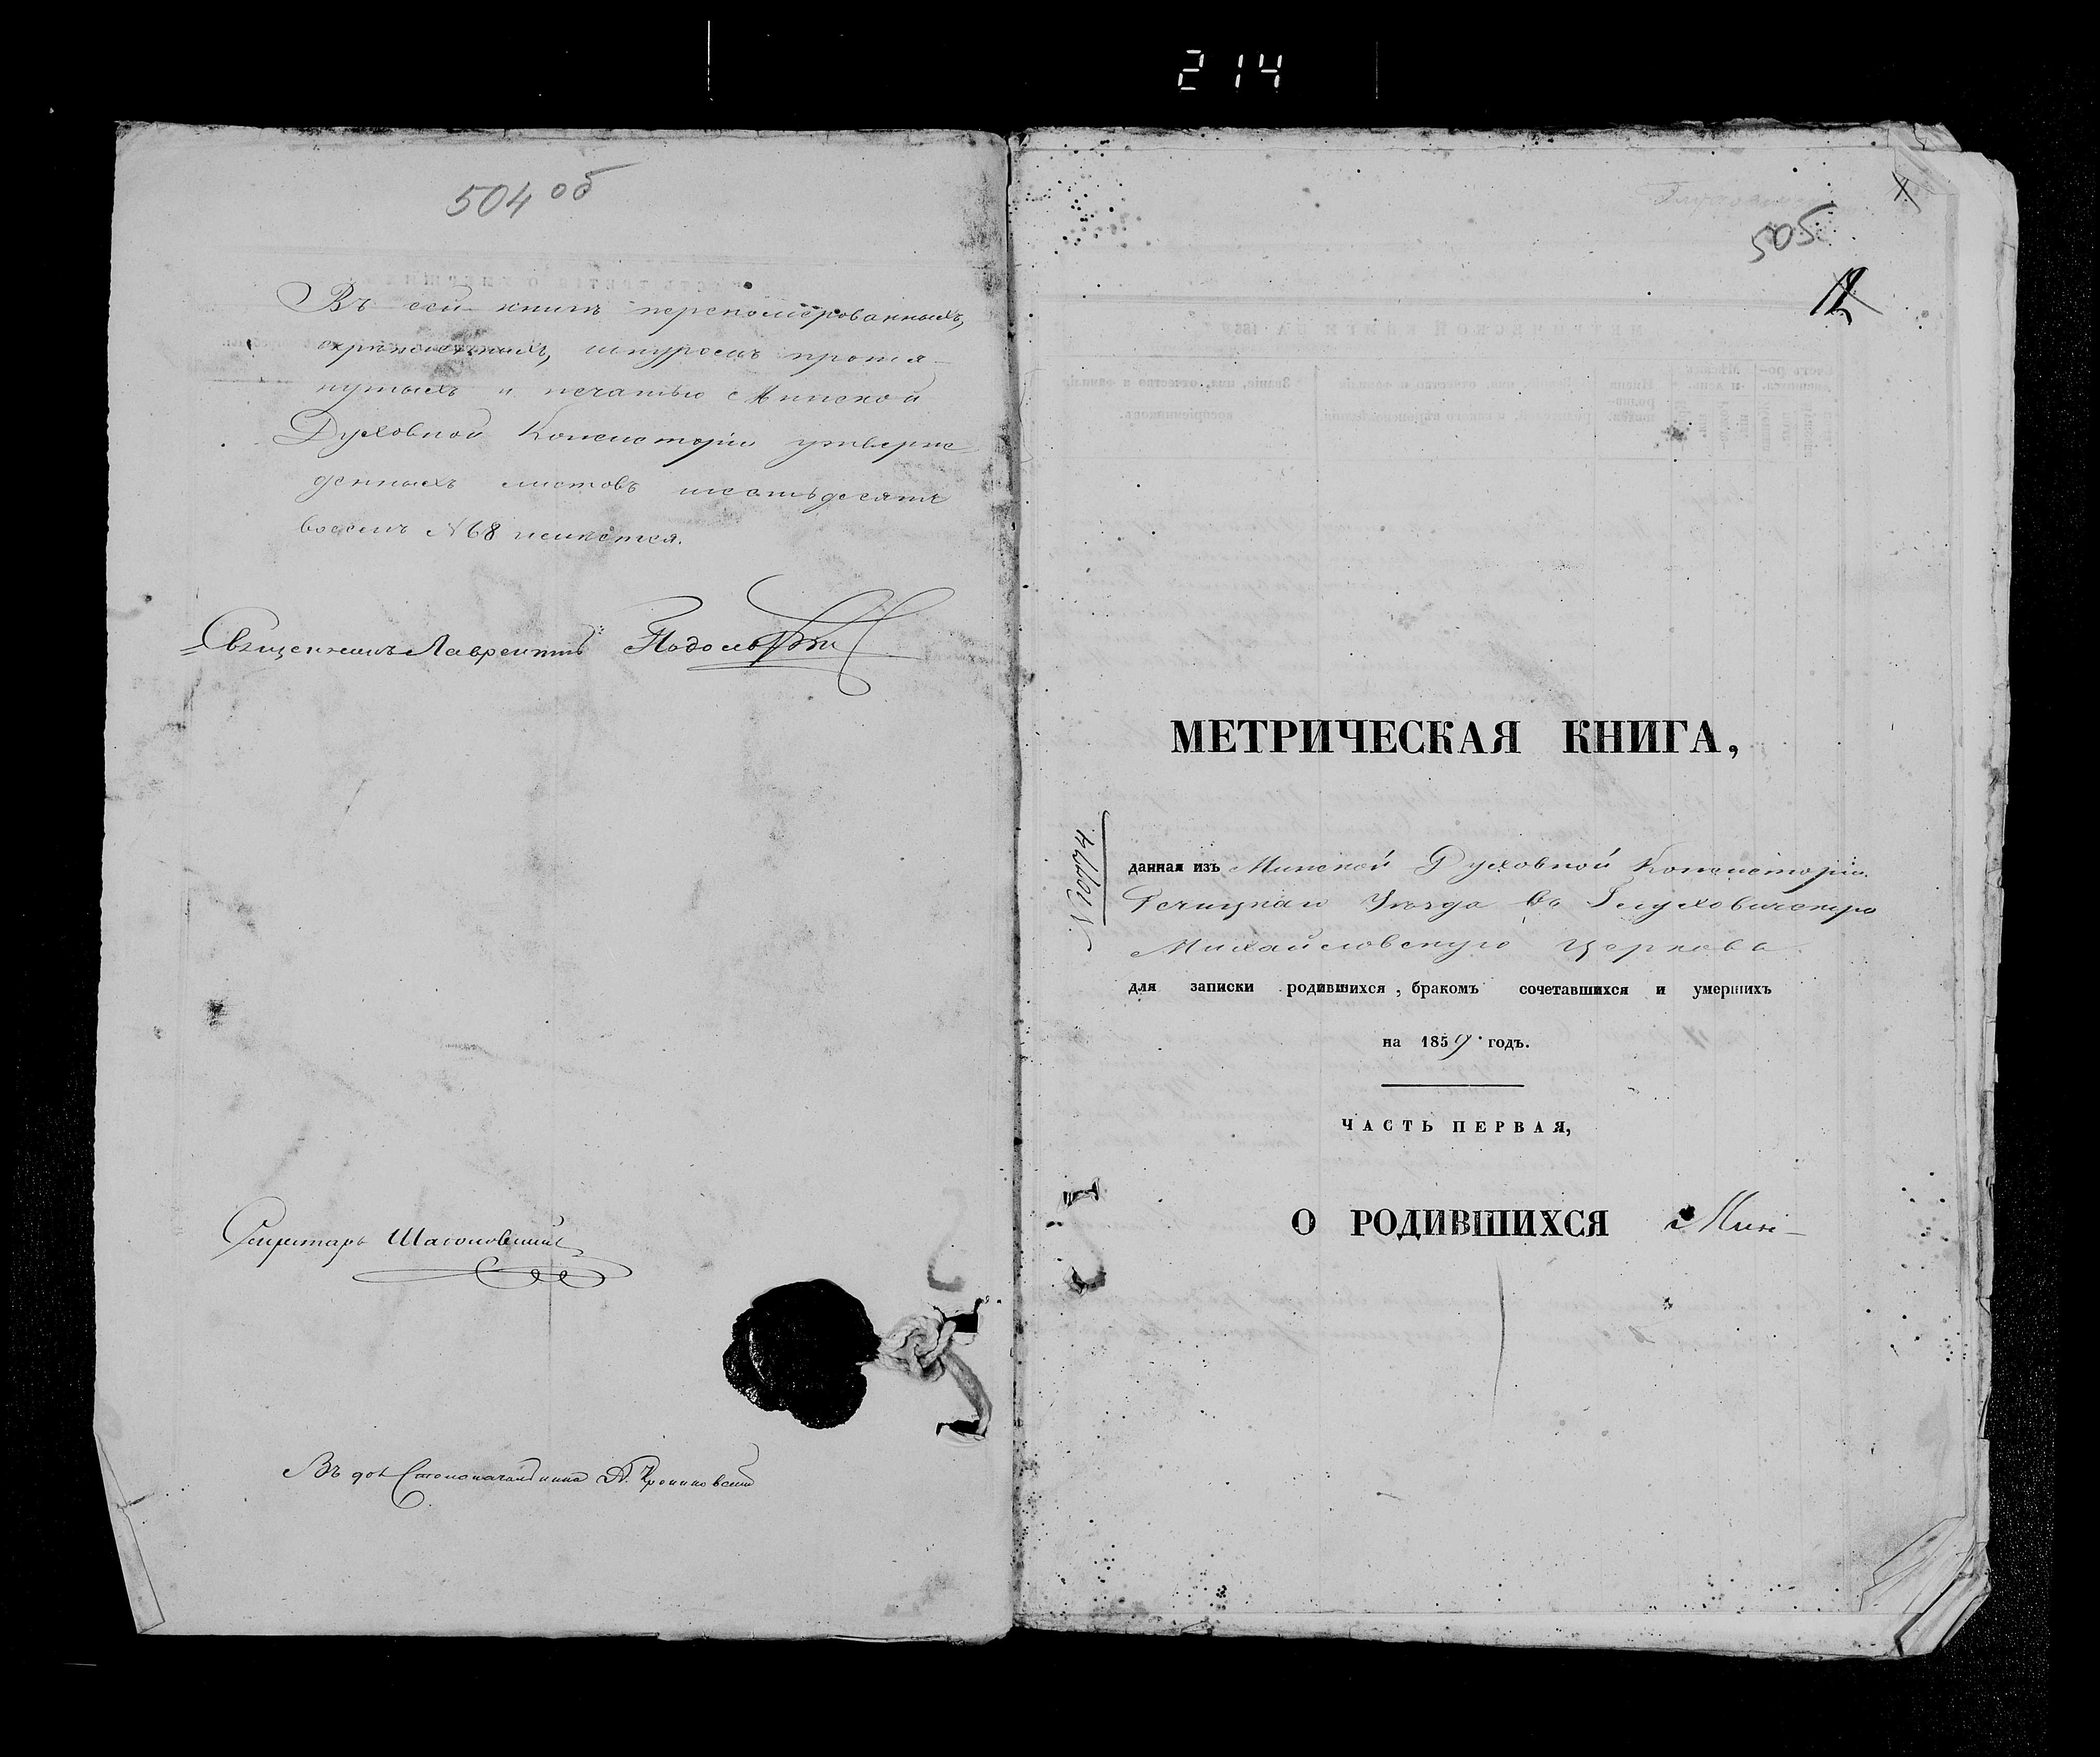 214
504 об
Въ сей книгѣ перенолерованныхъ,
скрѣпленныхъ, шнуромъ протя-
нутыхъ и печатью Минской
Духовной Консисторіи утверж
денныхъ листовъ шестьдесятъ
восемь N 68 имѣется.
Священникъ Лаврентій
Секретарь
Въ дол. Столоначальника
505
12
МЕТРИЧЕСКАЯ КНИГА,
N 10774
данная изъ Минской Духовной Консисторіи
Речицкаго Уѣзда въ Глуховичскую
Михайловскую церковь
для записки родившихся, бракомъ сочетавшихся и умершихъ
на 1859 годъ.
ЧАСТЬ ПЕРВАЯ,
О РОДИВШИХСЯ Мин-